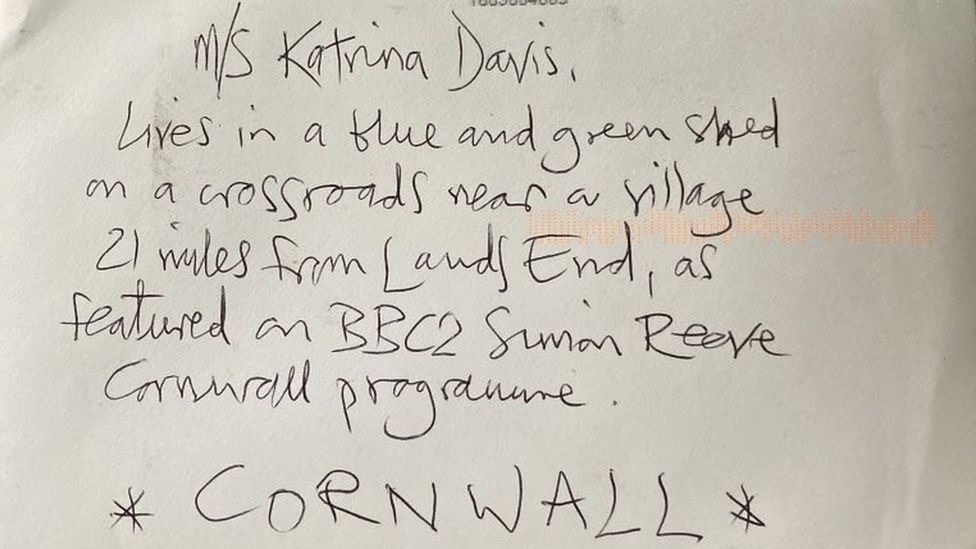 M/S Katrina Davis.
Lives in a blue and green shed
on a crossroads near a village
21 miles from Lands End, as
featured on BBC2 Simon Reeve
Cornwall programme.
* CORNWALL *